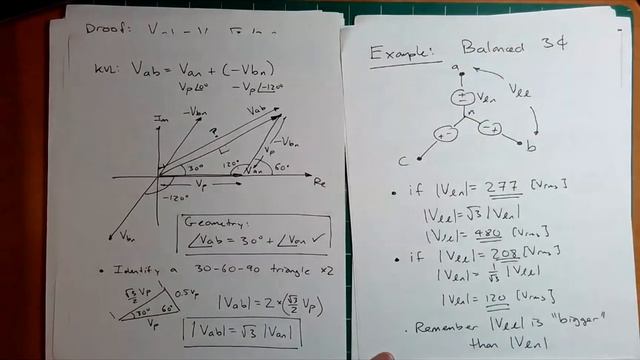 Proof:
KVL: Vab = Van + (-Vbn)
Vp∠0° -Vp∠-120°
Im
-Vbn
Vab
?
-Vbn
L
Vp
30°
120°
Van
60°
Vp
Re
-120°
Vbn
Geometry:
∠Vab = 30° + ∠Van ✓
• Identify a 30-60-90 triangle x2
√3/2 Vp
0.5Vp
30° 60°
Vp
|Vab| = 2 × (√3/2 Vp)
|Vab| = √3 |Van|
Example: Balanced 3ϕ
a
+
-
Vln
Vll
n
+ -
- +
c
b
• if |Vln| = 277 [Vrms]
|Vll| = √3 |Vln|
|Vll| = 480 [Vrms]
• if |Vll| = 208 [Vrms]
|Vln| = 1/√3 |Vll|
|Vln| = 120 [Vrms]
• Remember |Vll| is "bigger"
than |Vln|